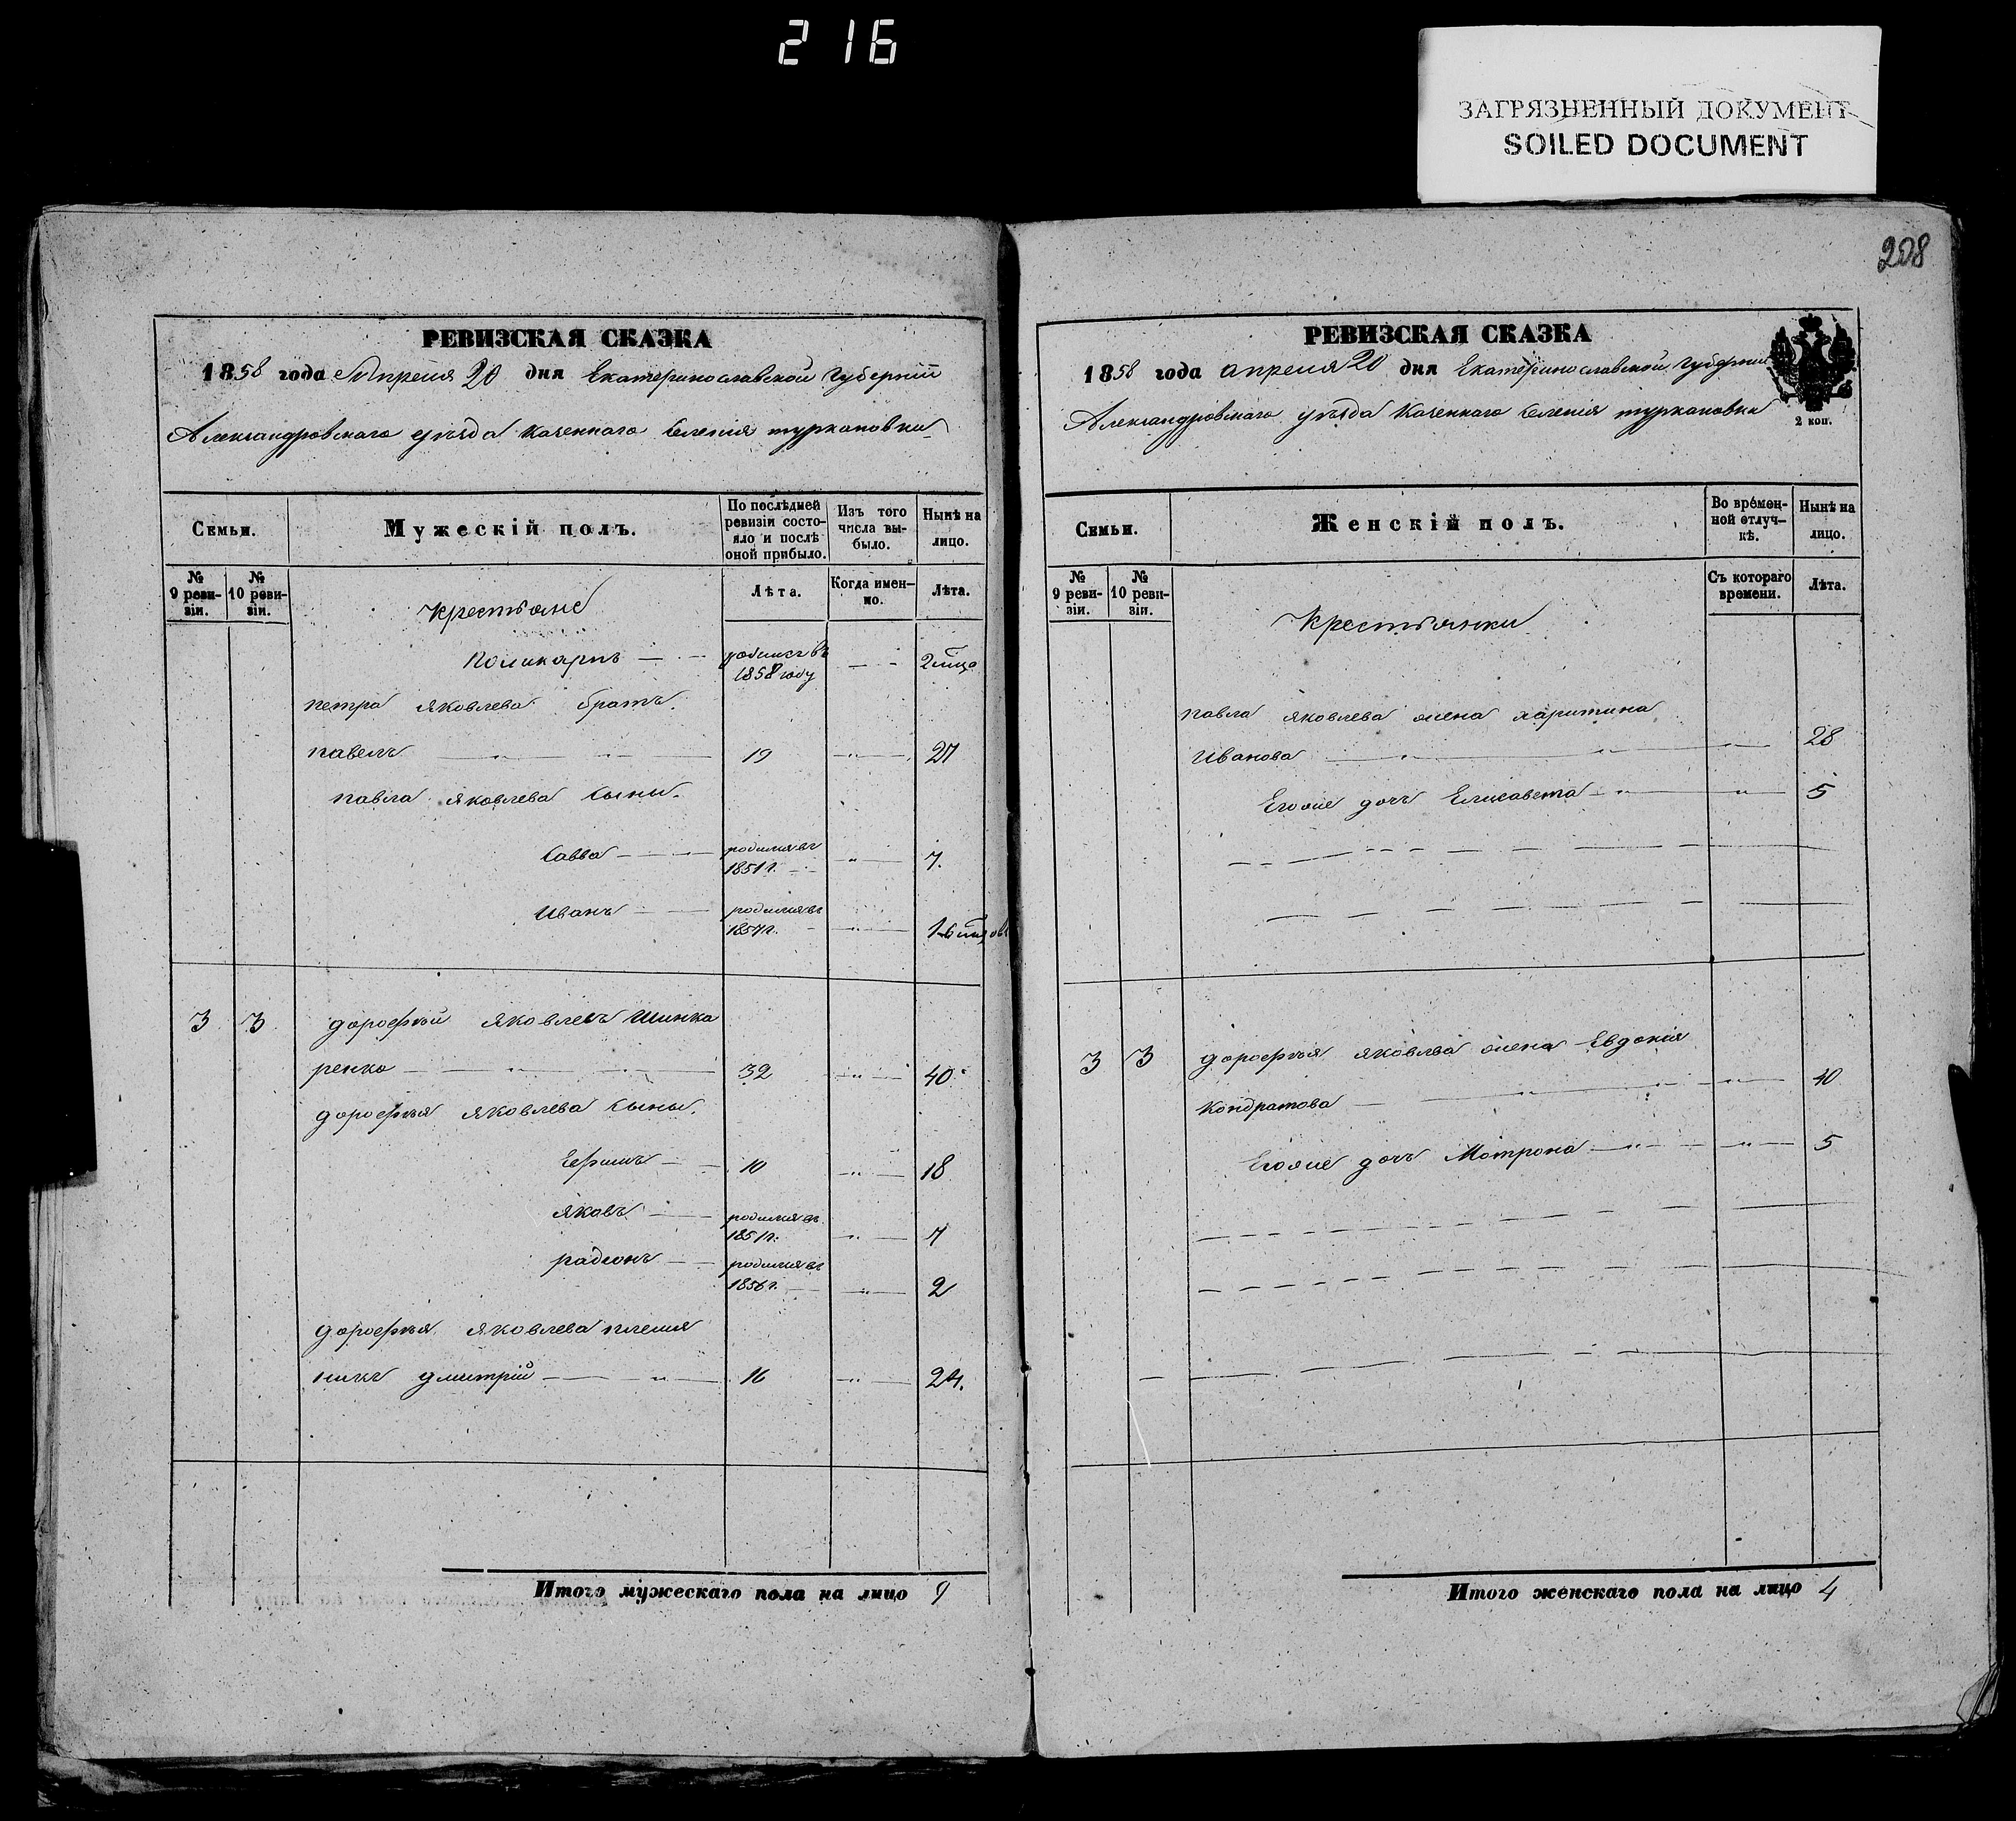 216
ЗАГРЯЗНЕННЫЙ ДОКУМЕНТ
SOILED DOCUMENT
РЕВИЗСКАЯ СКАЗКА
1858 года Апреля 20 дня Екатеринославской Губерніи
Александровскаго уѣзда казеннаго селенія туркановки
Семьи.
Мужескій полъ.
По послѣдней ревизіи состояло и послѣ оной прибыло.
Изъ того числа выбыло.
Нынѣ на лицо.
№ 9 ревизіи.
№ 10 ревизіи.
Крестьяне
Лѣта.
Когда именно.
Лѣта.
Поликарпъ родился въ 1858 году 2
петра яковлева братъ
павелъ 19 27
павла яковлева сыны
Савва родился въ 1851 г. 7.
Иванъ родился въ 1857 г. 1
3 3 дорофѣй яковлевъ Шинка
ренко 32 40
дорофѣя яковлева сыны.
Ефимъ 10 18
яковъ родился въ 1851 г. 7
радионъ родился въ 1856 г. 2
дорофѣя яковлева племя
никъ дмитрій 16 24.
Итого мужескаго пола на лицо 9
208
РЕВИЗСКАЯ СКАЗКА
1858 года апреля 20 дня Екатеринославской Губерніи
2 коп.
Александровскаго уѣзда казеннаго селенія туркановки
Семьи.
Женскій полъ.
Во временной отлучкѣ.
Нынѣ на лицо.
№ 9 ревизіи.
№ 10 ревизіи.
Крестьянки
Съ котораго времени.
Лѣта.
павла яковлева жена харитина
Иванова 28
Егоже дочь Елисавета 5
3 3 дорофѣя яковлева жена Евдокія
Кондратова 40
Егоже дочь Мотрона 5
Итого женскаго пола на лицо 4